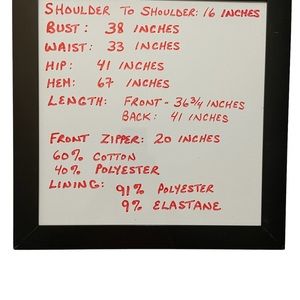 SHOULDER TO SHOULDER: 16 INCHES
BUST: 38 INCHES
WAIST: 33 INCHES
HIP: 41 INCHES
HEM: 67 INCHES
LENGTH: FRONT - 36 3/4 INCHES
BACK: 41 INCHES
FRONT ZIPPER: 20 INCHES
60% COTTON
40% POLYESTER
LINING: 91% POLYESTER
9% ELASTANE